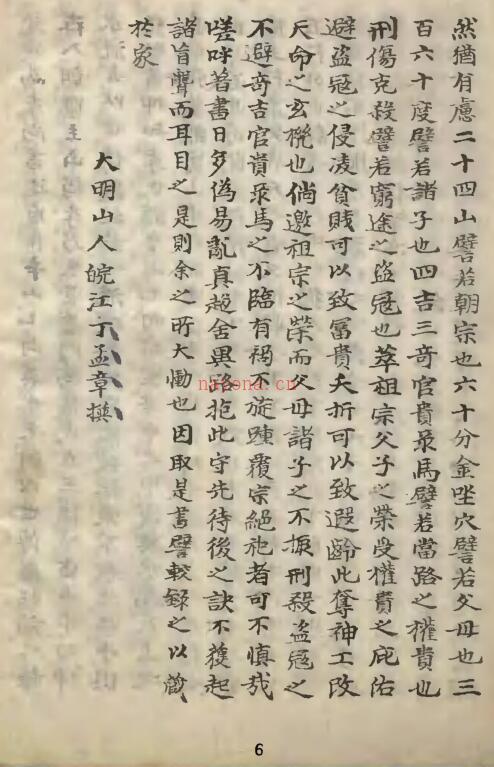 然猶有慮二十四山譬若朝宗也六十分金坐穴譬若父母也三
百六十度譬若諸子也四吉三奇官貴祿馬譬若當路之權貴也
刑傷克殺譬若窮途之盜冠也萃祖宗父子之榮受權貴之庇佑
避盜冠之侵凌貧賤可以致富貴夭折可以致遐齡此奪神工改
天命之玄機也倘邀祖宗之榮而父母諸子之不振刑殺盜冠之
不避奇吉官貴祿馬之不臨有禍不旋踵覆宗絕祀者可不慎哉
嗟吁著書日多偽易亂真超舍異路抱此守先待後之訣不獲起
諸盲聾而耳目之是則余之所大慟也因取是書譬較録之以藏
於家
大明山人皖江丁孟章撰
nayona.cn
6